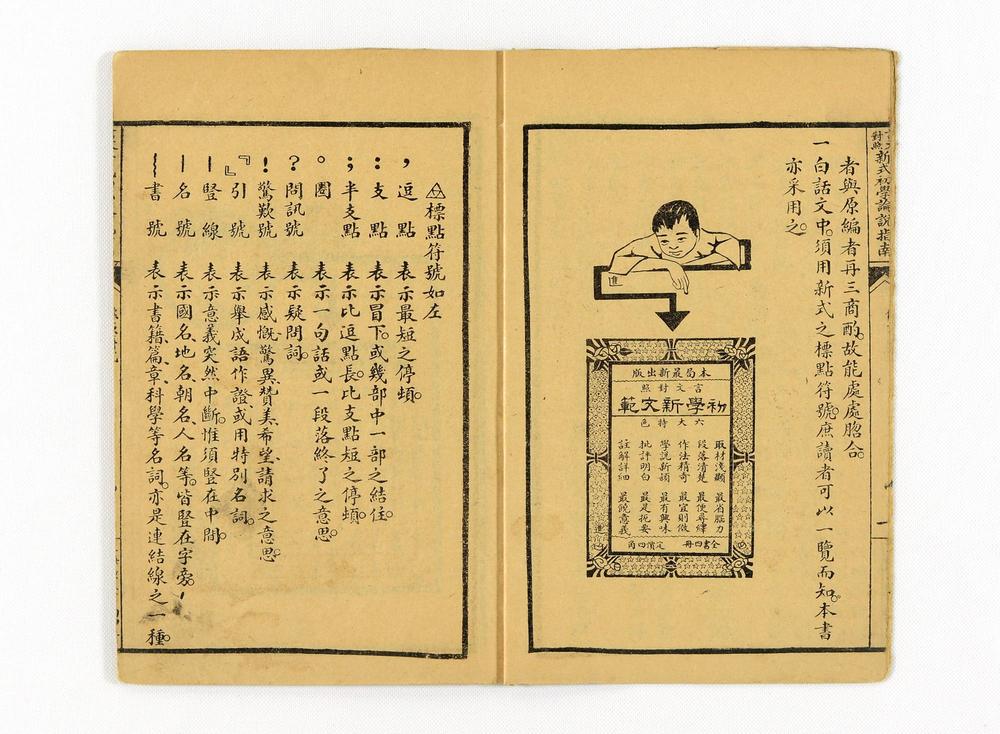 新式初學論說指南
者與原編者再三商酌。故能處處脗合。
一白話文中。須用新式之標點符號。庶讀者可以一覽而知。本書
亦采用之。
進
本局最新出版
言文對照
初學新文範
六大特色
取材淺顯 最省腦力
段落清楚 最便尋繹
作法精奇 最宜則傚
學說新穎 最有興味
批評明白 最是扼要
註解詳細 最饒意義
全書四冊 定價四角
標點符號如左
，逗點 表示最短之停頓。
：支點 表示冒下。或幾部中一部之結住。
；半支點 表示比逗點長。比支點短之停頓。
。圈 表示一句話或一段落終了之意思。
？問訊號 表示疑問詞。
！驚歎號 表示感慨、驚異、贊美、希望、請求之意思。
『』引號 表示舉成語作證或用特別名詞。
｜豎線 表示意義突然中斷。惟須豎在中間。
｜名號 表示國名、地名、朝名、人名等。皆豎在字旁。
﹏書號 表示書籍、篇章、科學等名詞。亦是連結線之一種。